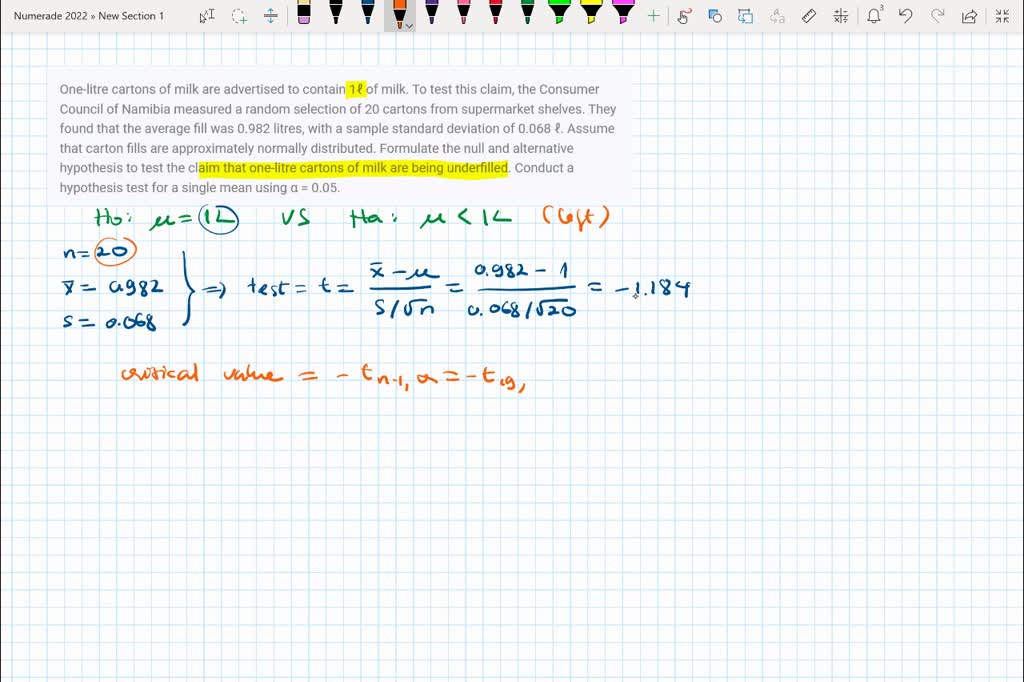 Numerade 2022 » New Section 1
3
One-litre cartons of milk are advertised to contain 1ℓ of milk. To test this claim, the Consumer
Council of Namibia measured a random selection of 20 cartons from supermarket shelves. They
found that the average fill was 0.982 litres, with a sample standard deviation of 0.068 ℓ. Assume
that carton fills are approximately normally distributed. Formulate the null and alternative
hypothesis to test the claim that one-litre cartons of milk are being underfilled. Conduct a
hypothesis test for a single mean using α = 0.05.
Ho: μ = 1L VS Ha: μ < 1L (left)
n = 20
x̄ = 0.982
s = 0.068
⇒ test = t = (x̄ - μ)/(S/√n) = (0.982 - 1)/(0.068/√20) = -1.184
critical value = - t n-1, α = - t 19,